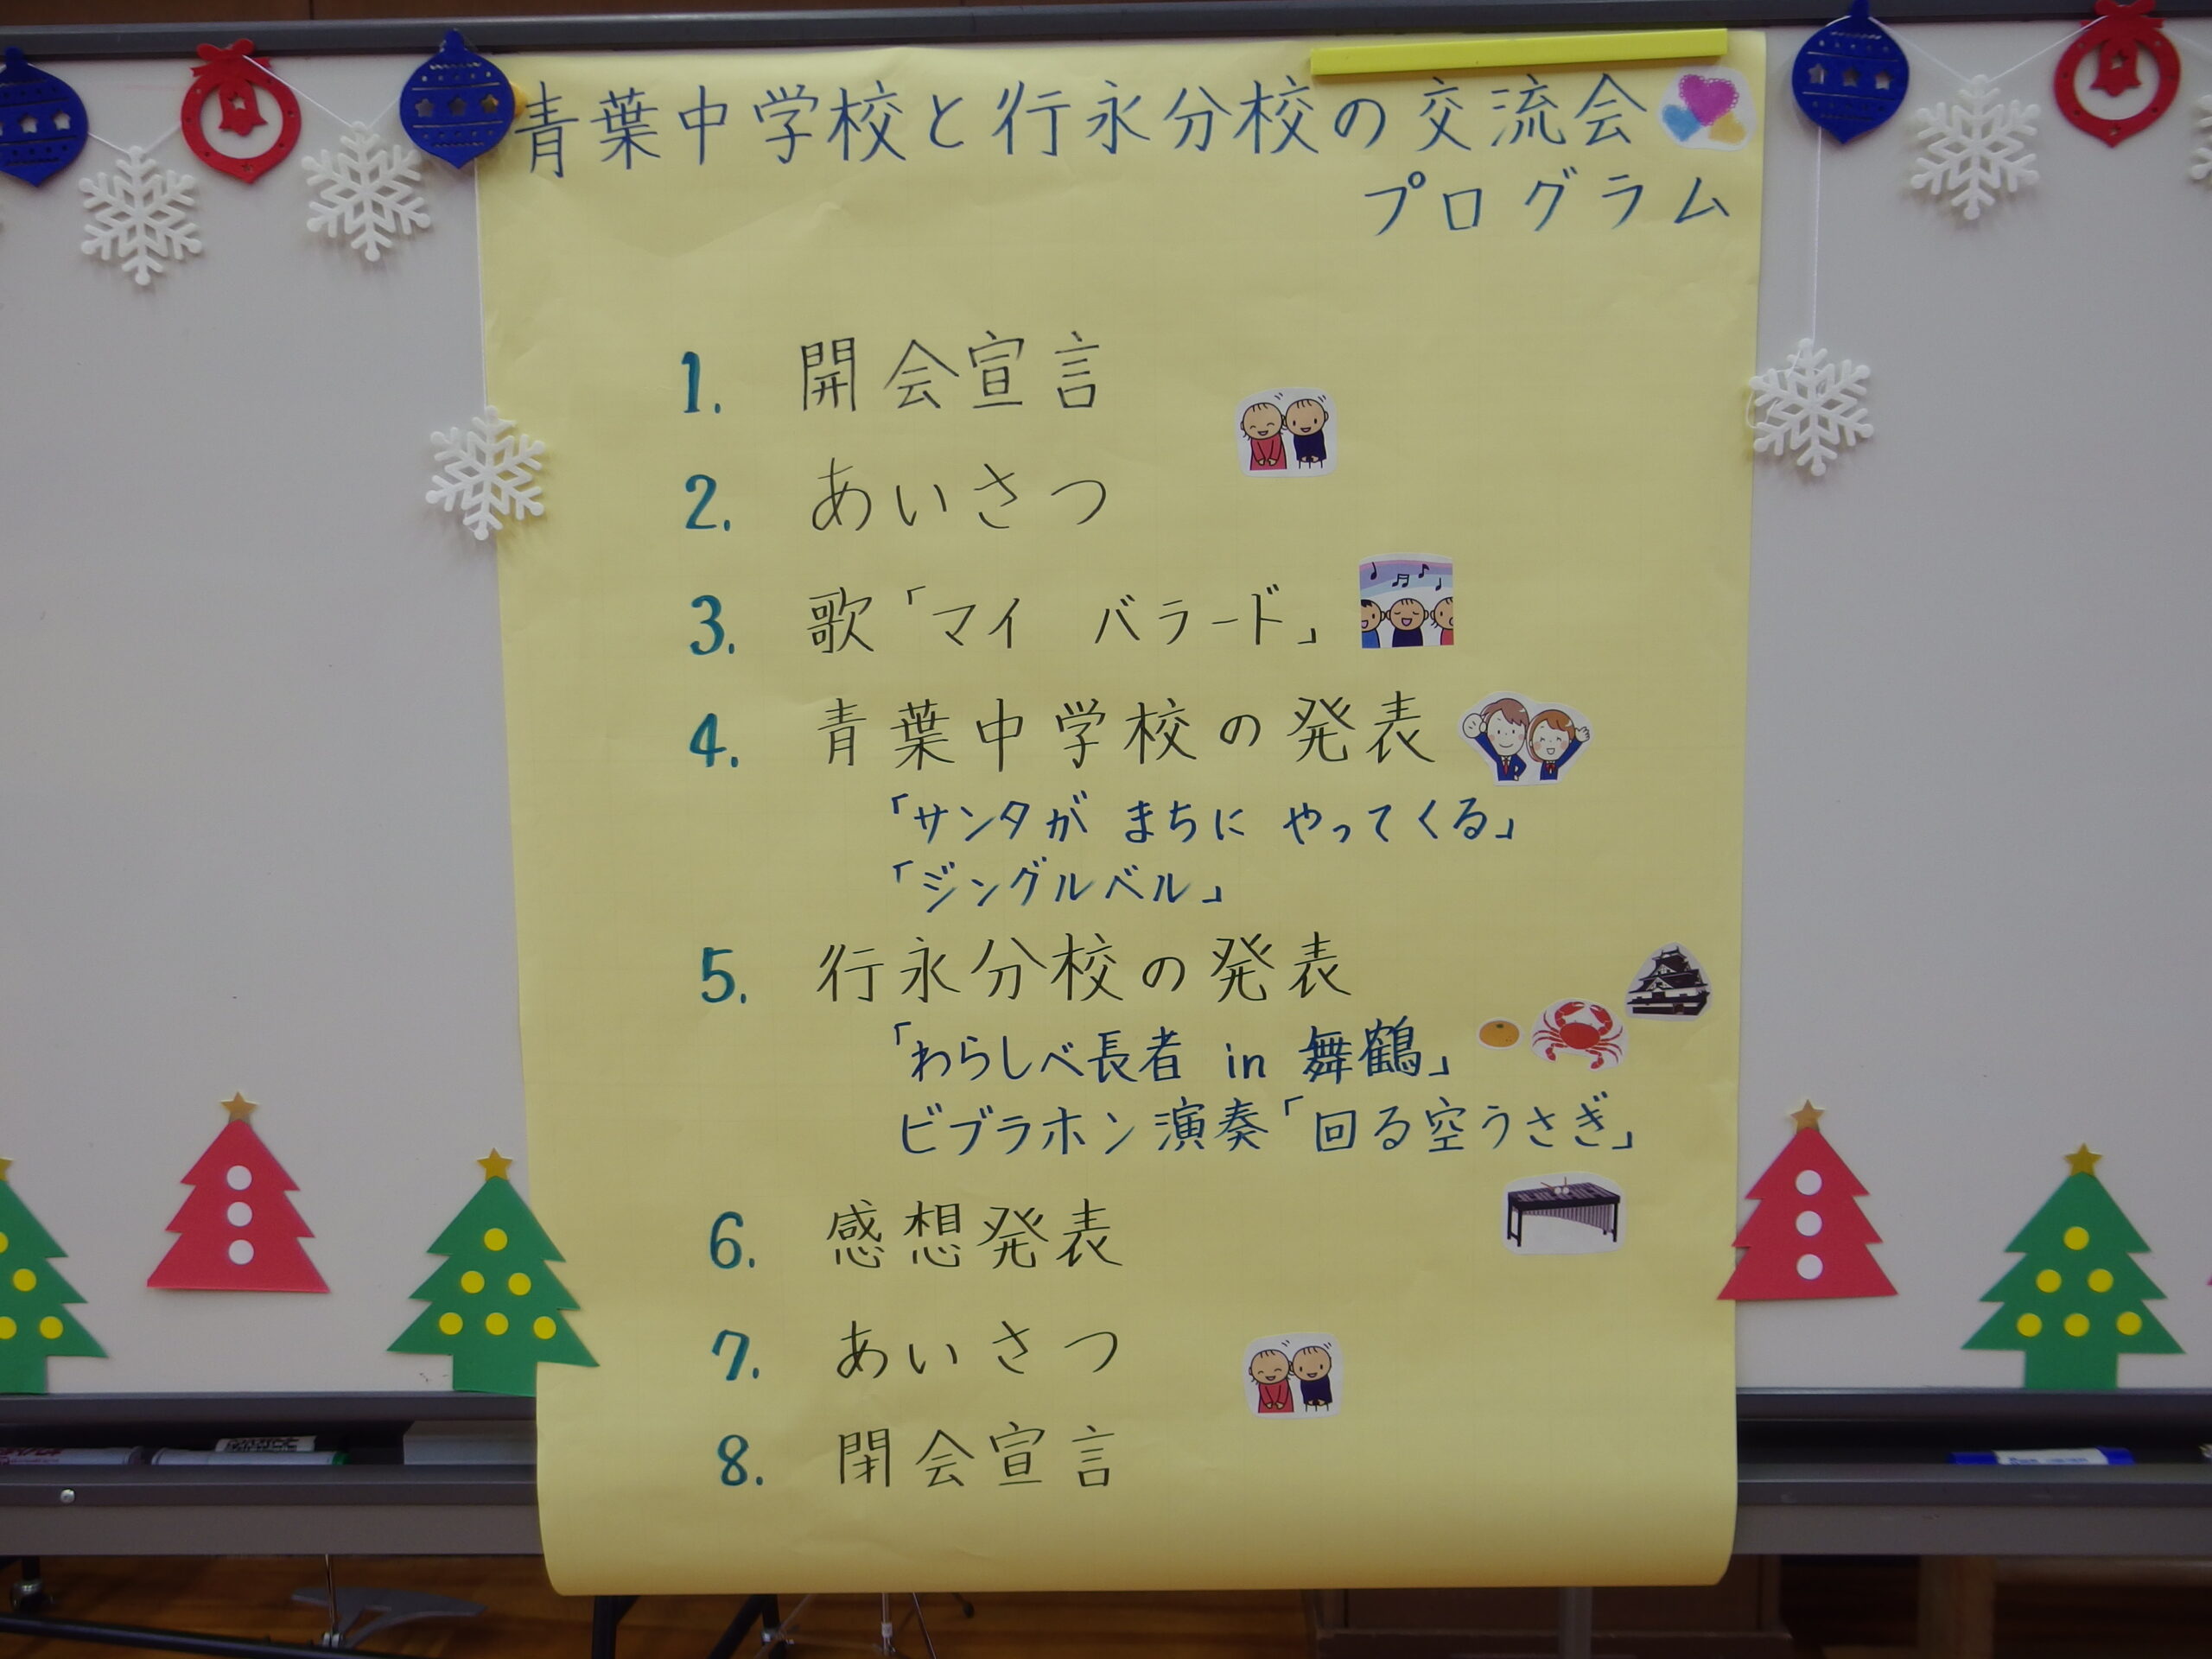 青葉中学校と行永分校の交流会
プログラム
1. 開会宣言
2. あいさつ
3. 歌「マイ バラード」
4. 青葉中学校の発表
「サンタが まちに やってくる」
「ジングルベル」
5. 行永分校の発表
「わらしべ長者 in 舞鶴」
ビブラホン演奏「回る空うさぎ」
6. 感想発表
7. あいさつ
8. 閉会宣言